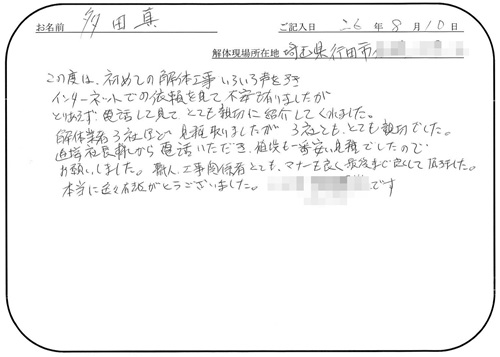 お名前 多田真 ご記入日 26年8月10日
解体現場所在地 埼玉県行田市
この度は、初めての解体工事いろいろ声をきき
インターネットでの依頼を見て不安がありましたが
とりあえず電話して見てとても親切に紹介してくれました。
解体業者3社ほど見積取りましたが3社とも、とても親切でした。
社長から電話いただき、値段も一番安い見積でしたので
お願いしました。職人、工事関係者とても、マナーも良く最後まで良くして頂きました。
本当に色々ありがとうございました。 です